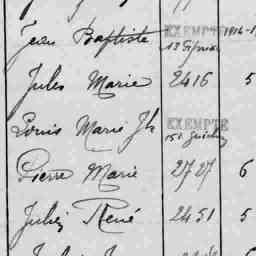 Jean Baptiste EXEMPTÉ 1916-1
Jules Marie 2416 5
Louis Marie Jh EXEMPTÉ
Pierre Marie 2727 6
Julien René 2451 5